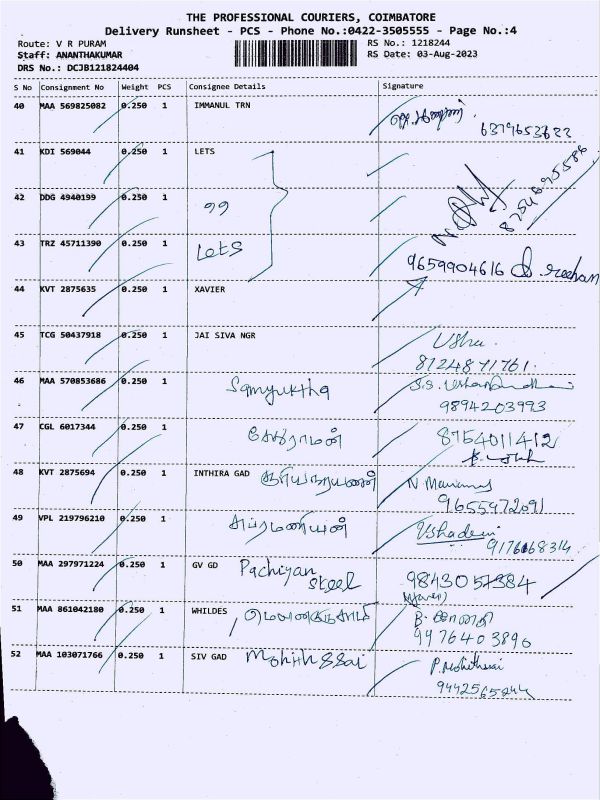 THE PROFESSIONAL COURIERS, COIMBATORE
Delivery Runsheet - PCS - Phone No.:0422-3505555 - Page No.:4
Route: V R PURAM
RS No.: 1218244
Staff: ANANTHAKUMAR
RS Date: 03-Aug-2023
DRS No.: DCJB121824404
S No Consignment No Weight PCS Consignee Details Signature
40 MAA 569825082 0.250 1 IMMANUL TRN
6379653622
41 KDI 569044 0.250 1 LETS
8754695586
42 DDG 4940199 0.250 1 99
43 TRZ 45711390 0.250 1 Lets
9659904616
44 KVT 2875635 0.250 1 XAVIER
45 TCG 50437918 0.250 1 JAI SIVA NGR Usha
8124871761
46 MAA 570853686 0.250 1 Samyuktha
9894203993
47 CGL 6017344 0.250 1 சேதுராமன் 8754011412
48 KVT 2875694 0.250 1 INTHIRA GAD சூரியநாராயணன்
9655972091
49 VPL 219796210 0.250 1 சுப்ரமணியன் Ushadevi
9176068314
50 MAA 297971224 0.250 1 GV GD Pachiyan Steel 9843057384
51 MAA 861042180 0.250 1 WHILDES
9476403896
52 MAA 103071766 0.250 1 SIV GAD Mohith Ssai
9442565244